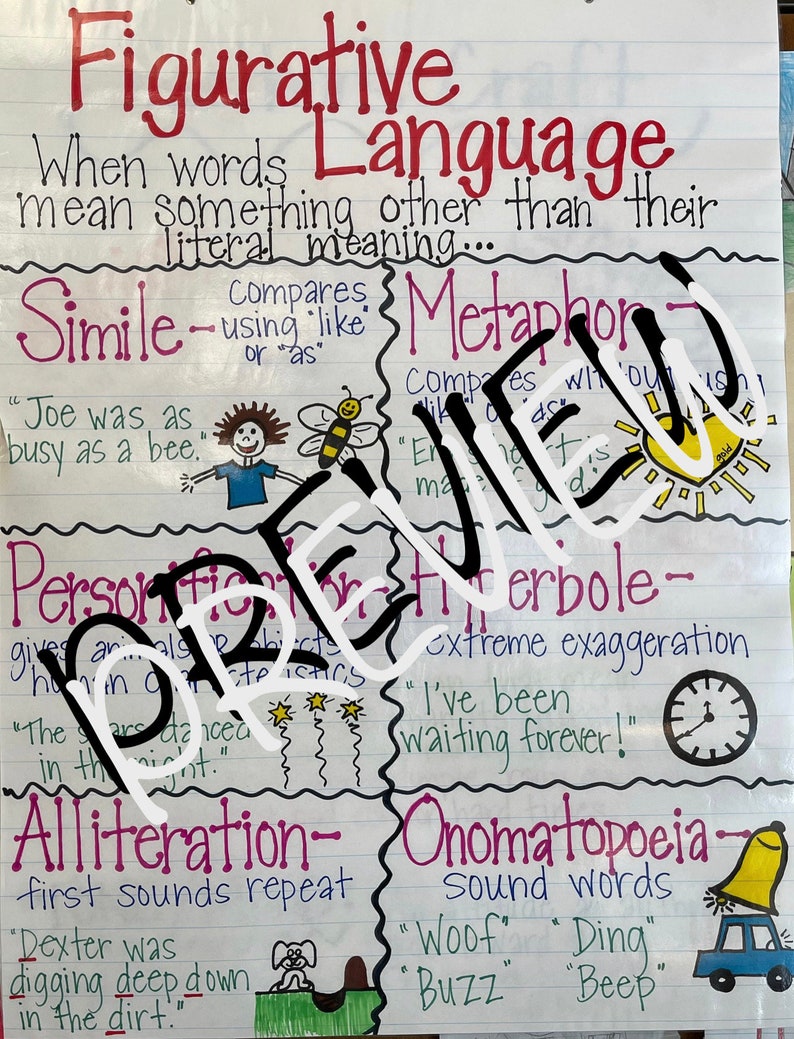 Figurative
Language
When words
mean something other than their
literal meaning...
Simile - Compares
using "like"
or "as"
"Joe was as
busy as a bee."
Metaphor -
compares without using
"like" or "as"
heart is
made of gold."
gold
Personification -
gives animals or objects
human characteristics
"The stars danced
in the night."
Hyperbole -
extreme exaggeration
"I've been
waiting forever!"
Alliteration -
first sounds repeat
"Dexter was
digging deep down
in the dirt."
Onomatopoeia -
sound words
"Woof" "Ding"
"Buzz" "Beep"
PREVIEW